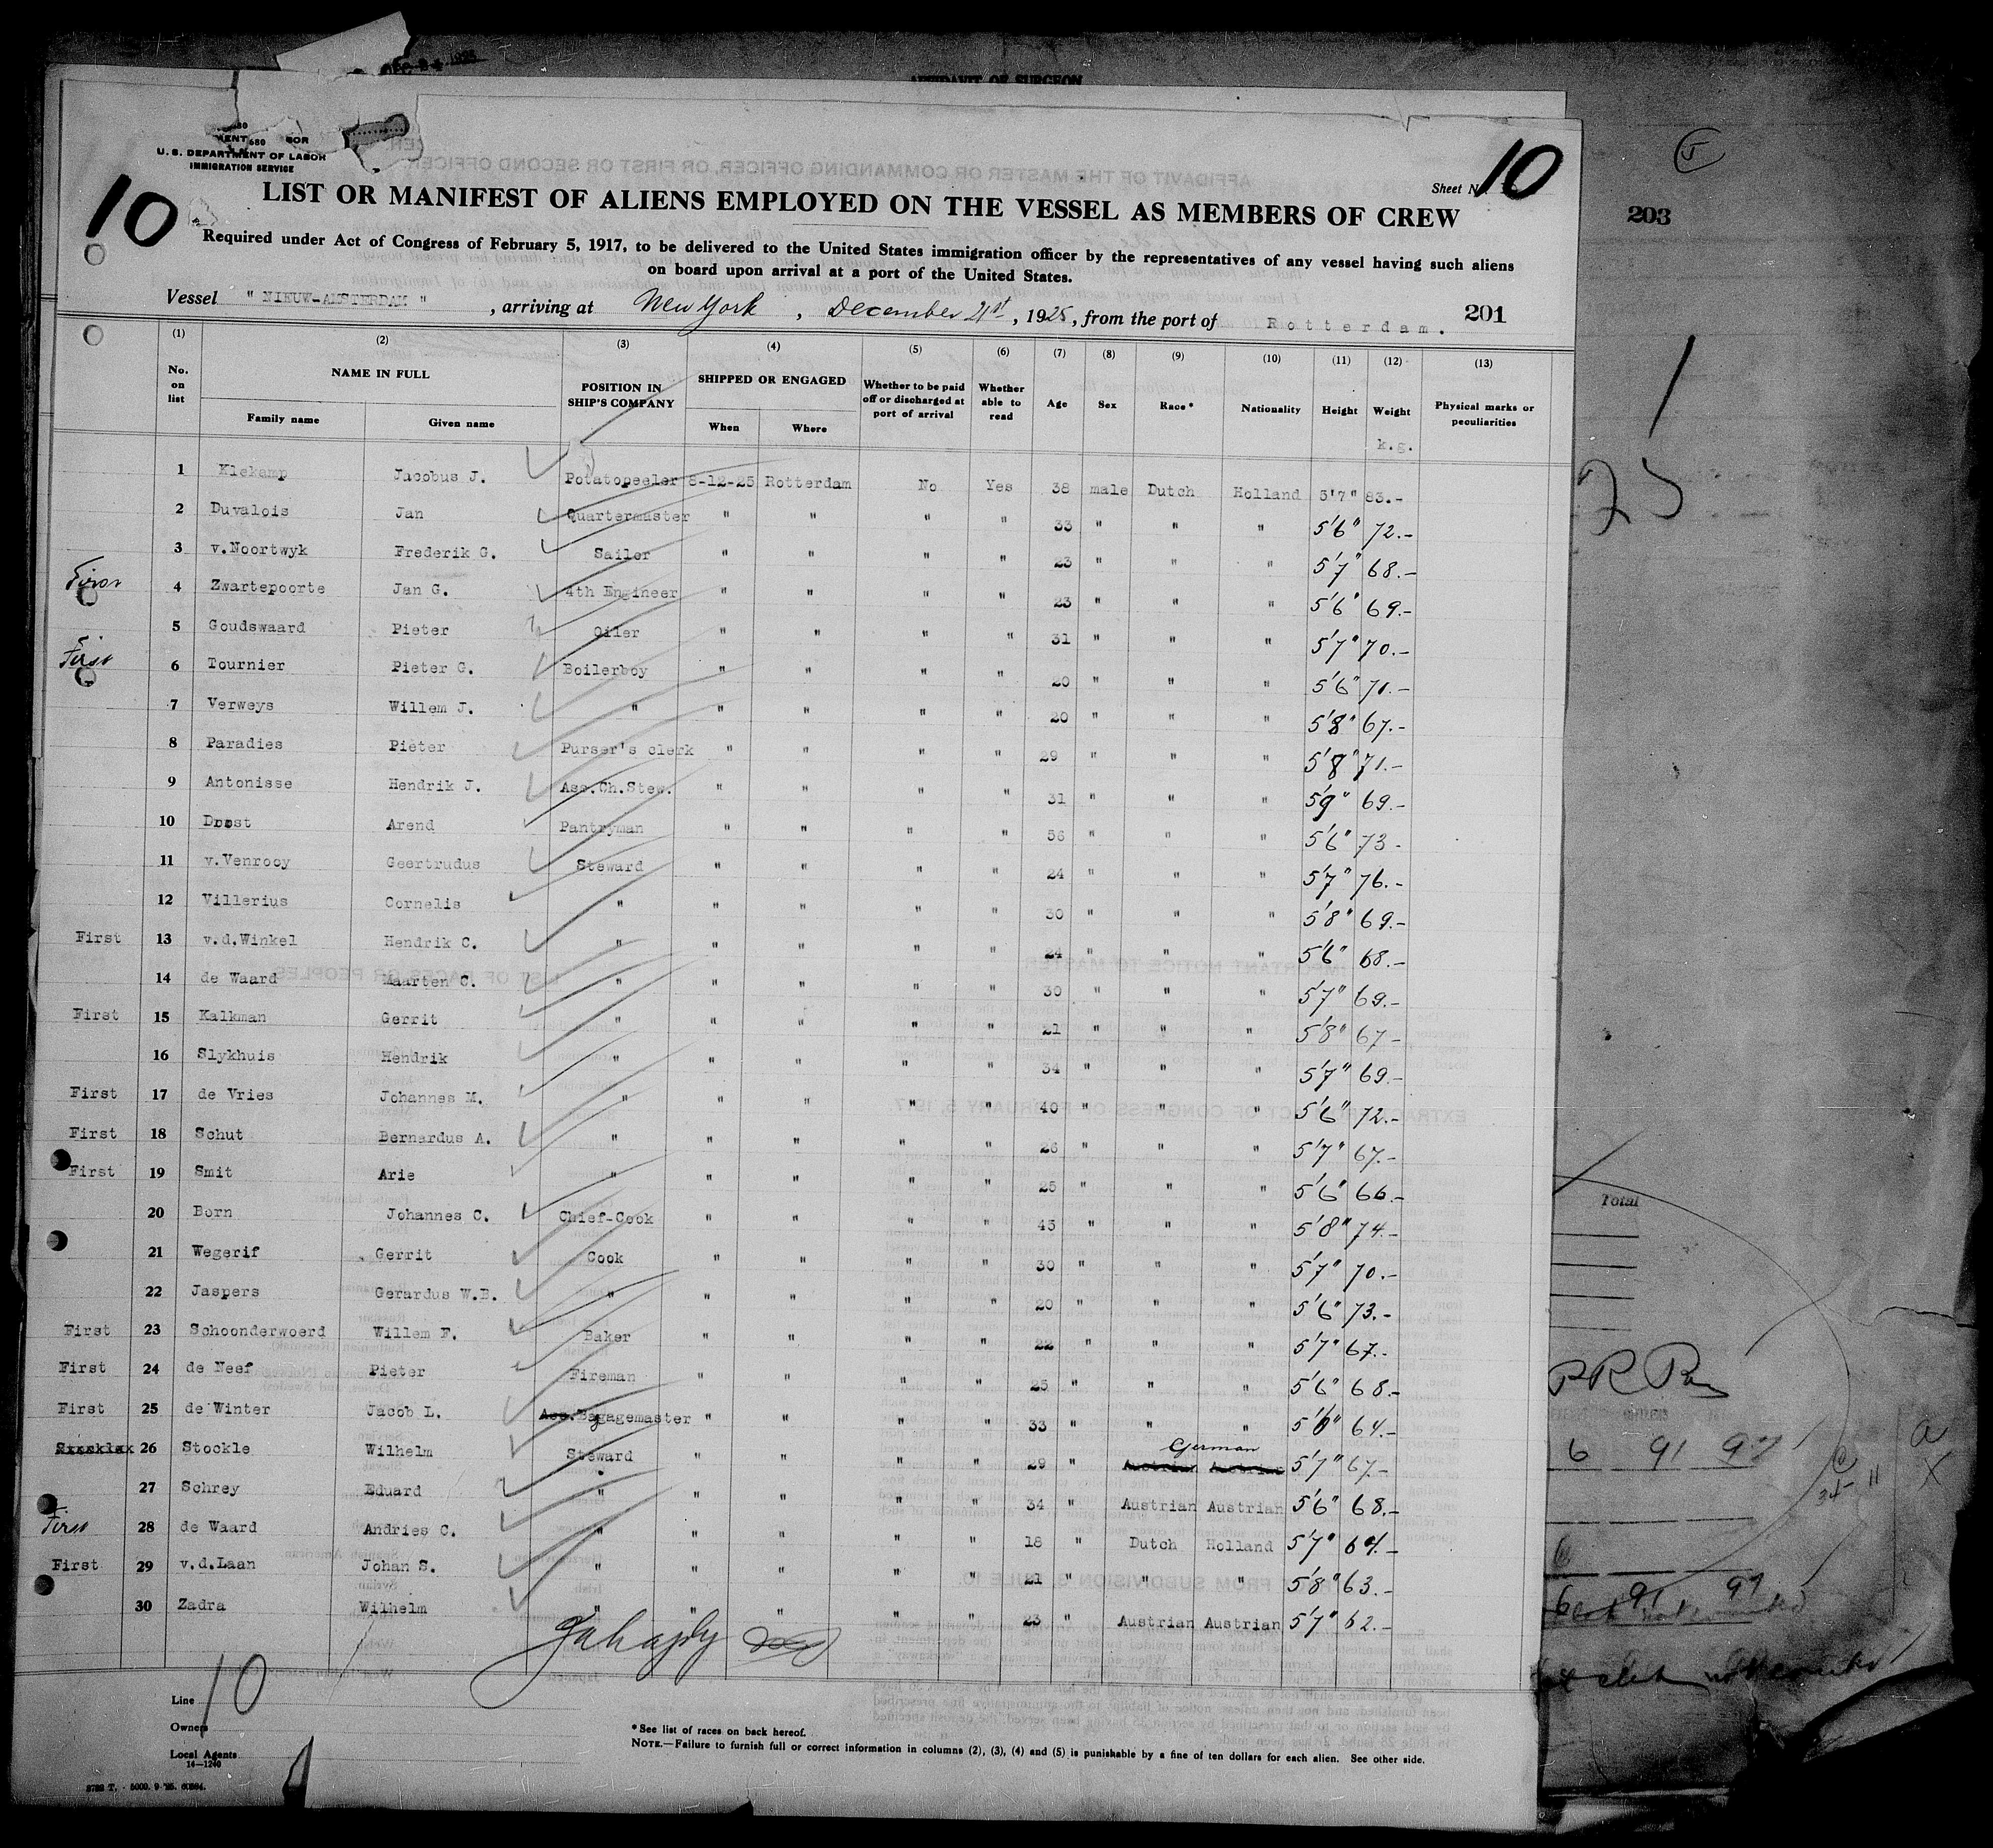 DEC 24 1925
AFFIDAVIT OF SURGEON
680
U. S. DEPARTMENT OF LABOR
IMMIGRATION SERVICE
10
10
Sheet No.
203
LIST OR MANIFEST OF ALIENS EMPLOYED ON THE VESSEL AS MEMBERS OF CREW
Required under Act of Congress of February 5, 1917, to be delivered to the United States immigration officer by the representatives of any vessel having such aliens
on board upon arrival at a port of the United States.
Vessel " NIEUW-AMSTERDAM ", arriving at New York, December 21st, 1925, from the port of Rotterdam. 201
(1) (2) (3) (4) (5) (6) (7) (8) (9) (10) (11) (12) (13)
No. on list NAME IN FULL POSITION IN SHIP'S COMPANY SHIPPED OR ENGAGED Whether to be paid off or discharged at port of arrival Whether able to read Age Sex Race* Nationality Height Weight Physical marks or peculiarities
Family name Given name When Where k.g.
1 Klekamp Jacobus J. Potatopeeler 8-12-25 Rotterdam No Yes 38 male Dutch Holland 5'7" 83.-
2 Duvalois Jan Quartermaster " " " " 33 " " " 5'6" 72.-
3 v.Noortwyk Frederik G. Sailor " " " " 23 " " " 5'7 68.-
First 4 Zwartepoorte Jan G. 4th Engineer " " " " 23 " " " 5'6" 69.-
5 Goudswaard Pieter Oiler " " " " 31 " " " 5'7" 70.-
First 6 Tournier Pieter G. Boilerboy " " " " 20 " " " 5'6" 71.-
7 Verweys Willem J. " " " " " 20 " " " 5'8" 67.-
8 Paradies Pieter Purser's clerk " " " " 29 " " " 5'8" 71.-
9 Antonisse Hendrik J. Ass.Ch.Stew. " " " " 31 " " " 5'9" 69.-
10 Drost Arend Pantryman " " " " 56 " " " 5'6" 73-
11 v.Venrooy Geertrudus Steward " " " " 24 " " " 5'7" 76.-
12 Villerius Cornelis " " " " " 30 " " " 5'8" 69.-
First 13 v.d.Winkel Hendrik C. " " " " " 24 " " " 5'6" 68.-
14 de Waard Maarten C. " " " " " 30 " " " 5'7" 69.-
First 15 Kalkman Gerrit " " " " " 21 " " " 5'8" 67-
16 Slykhuis Hendrik " " " " " 34 " " " 5'7" 69.-
First 17 de Vries Johannes M. " " " " " 40 " " " 5'6" 72.-
First 18 Schut Bernardus A. " " " " " 26 " " " 5'7" 67.-
First 19 Smit Arie " " " " " 25 " " " 5'6" 66.-
20 Born Johannes C. Chief-Cook " " " " 45 " " " 5'8" 74.-
21 Wegerif Gerrit Cook " " " " 30 " " " 5'7" 70.-
22 Jaspers Gerardus W.B. " " " " " 20 " " " 5'6" 73.-
First 23 Schoonderwoerd Willem F. Baker " " " " 22 " " " 5'7" 67.-
First 24 de Neef Pieter Fireman " " " " 25 " " " 5'6" 68.-
First 25 de Winter Jacob L. Ass.Bagagemaster " " " " 33 " " " 64.-
26 Stockle Wilhelm Steward " " " " 29 " German 5'7" 67.-
27 Schrey Eduard " " " " " 34 " Austrian Austrian 5'6" 68.-
First 28 de Waard Andries C. " " " " " 18 " Dutch Holland 5'7" 64.-
First 29 v.d.Laan Johan S. " " " " " 21 " " " 5'8" 63.-
30 Zadra Wilhelm " " " " " 23 " Austrian Austrian 5'7" 62.-
10
Line
Owners
Local Agents
14—1240
*See list of races on back hereof.
NOTE.—Failure to furnish full or correct information in columns (2), (3), (4) and (5) is punishable by a fine of ten dollars for each alien. See other side.
Total
6 91 97
6 91 97